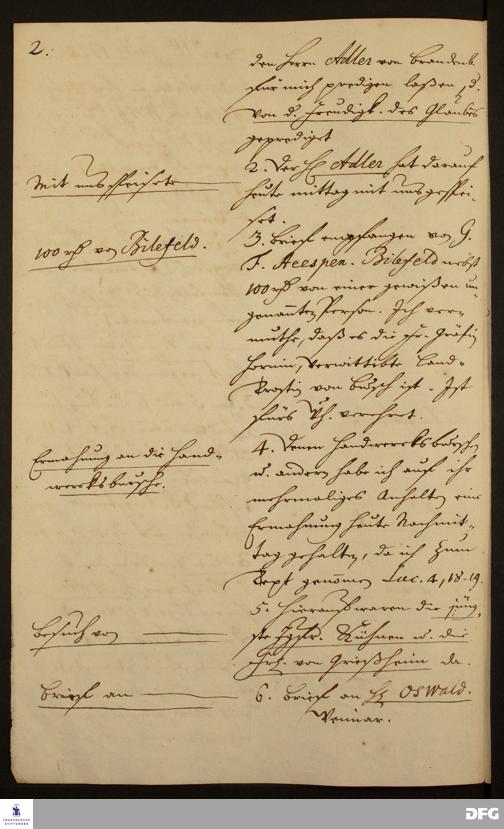 2.
den Herrn Adler von Brandenb.
für mich predigen laßen, d.
von d. Freudigk. des Glaubens
geprediget
Mit uns speisete
2. Der H Adler hat darauf
heute mittag mit uns gespei-
set.
100 rth von Bilefeld.
3. Brief empfangen von H.
F. Aeespen. Bilefeld nebst
100 rth von einer gewißen un-
genanten Person. Ich ver-
muthe, daß es die Fr. Gräfin
Hornin, verwittibte Land-
Drostin von Busch ist. Ist
fürs Ph. verehret.
Ermahnung an die Hand-
wercksbursche.
4. Denen Handwercksburschen
u. andern habe ich auf ihr
mehrmaliges Anhalten eine
Ermahnung heute Nachmit-
tag gehalten, da ich zum
Text genomen Luc. 4, 18.19.
Besuch von
5. Hierauf waren die jüng-
ste Jgfr. Kühnen u. die
Frl. von Grießheim da.
Brief an
6. Brief an H Oswald.
Weimar.
FRANCKESCHE STIFTUNGEN
DFG